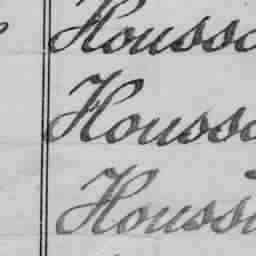 Housso
Housso
Houssi